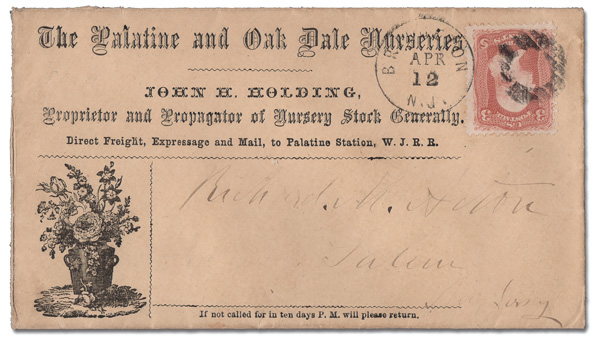 The Palatine and Oak Dale Nurseries
JOHN H. HOLDING,
Proprietor and Propagator of Nursery Stock Generally.
Direct Freight, Expressage and Mail, to Palatine Station, W. J. R. R.
APR
12
N.J.
Salem
Jersey
If not called for in ten days P. M. will please return.